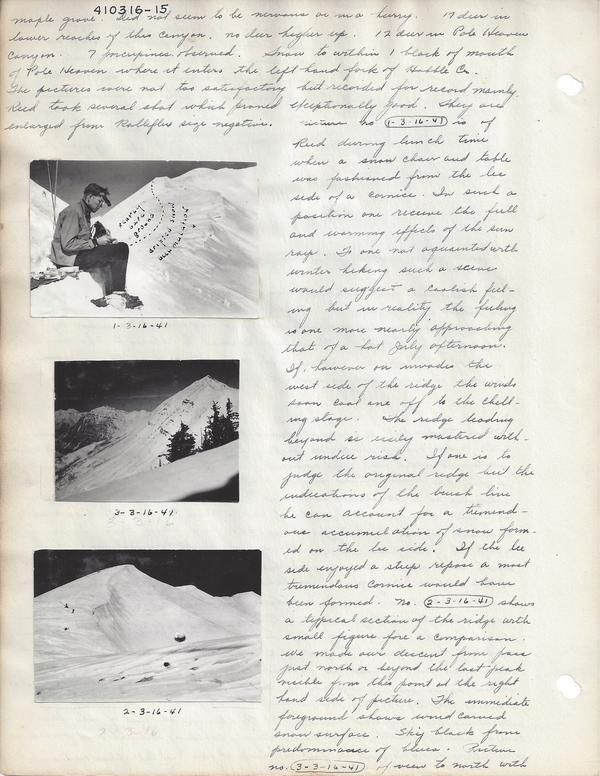 410316-15
maple grove. Did not seem to be nervous or in a hurry. 17 deer in
lower reaches of this canyon, no deer higher up. 12 deer in Pole Heaven
Canyon. 7 porcupines observed. Snow to within 1 block of mouth
of Pole Heaven where it enters the left hand fork of Hobble Cr.
The pictures were not too satisfactory but recorded for record mainly.
Reed took several shot which proved exceptionally good. They are
enlarged from Rolliflex size negative. Picture no 1-3-16-41 is of
Reed during lunch time
when a snow chair and table
was fashioned from the lee
side of a cornice. In such a
position one receive the full
and warming effects of the sun
rays. To one not aquainted with
winter hiking such a scene
would suggest a coolish feel-
ing but in reality the feeling
is one more nearly approaching
that of a hot July afternoon.
If, however on invades the
west side of the ridge the winds
soon cool one off to the chill-
ing stage. The ridge leading
beyond is easily mastered with-
out undue risk. If one is to
judge the original ridge but the
indications of the brush line
he can account for a tremend-
ous accumulation of snow form-
ed on the lee side. If the lee
side enjoyed a steep repose a most
tremendous cornice would have
been formed. No. 2-3-16-41 shows
a typical section of the ridge with
small figure fore a comparison.
We made our descent from pass
just north or beyond the last peak
visible from this point at the right
hand side of picture. The immediate
foreground shows wind carved
snow surface. Sky black from
predominance of blues. Picture
no. 3-3-16-41 of view to north with
ground
drifted snow
accumulation
1-3-16-41
3-3-16-41
2-3-16-41
2-3-16